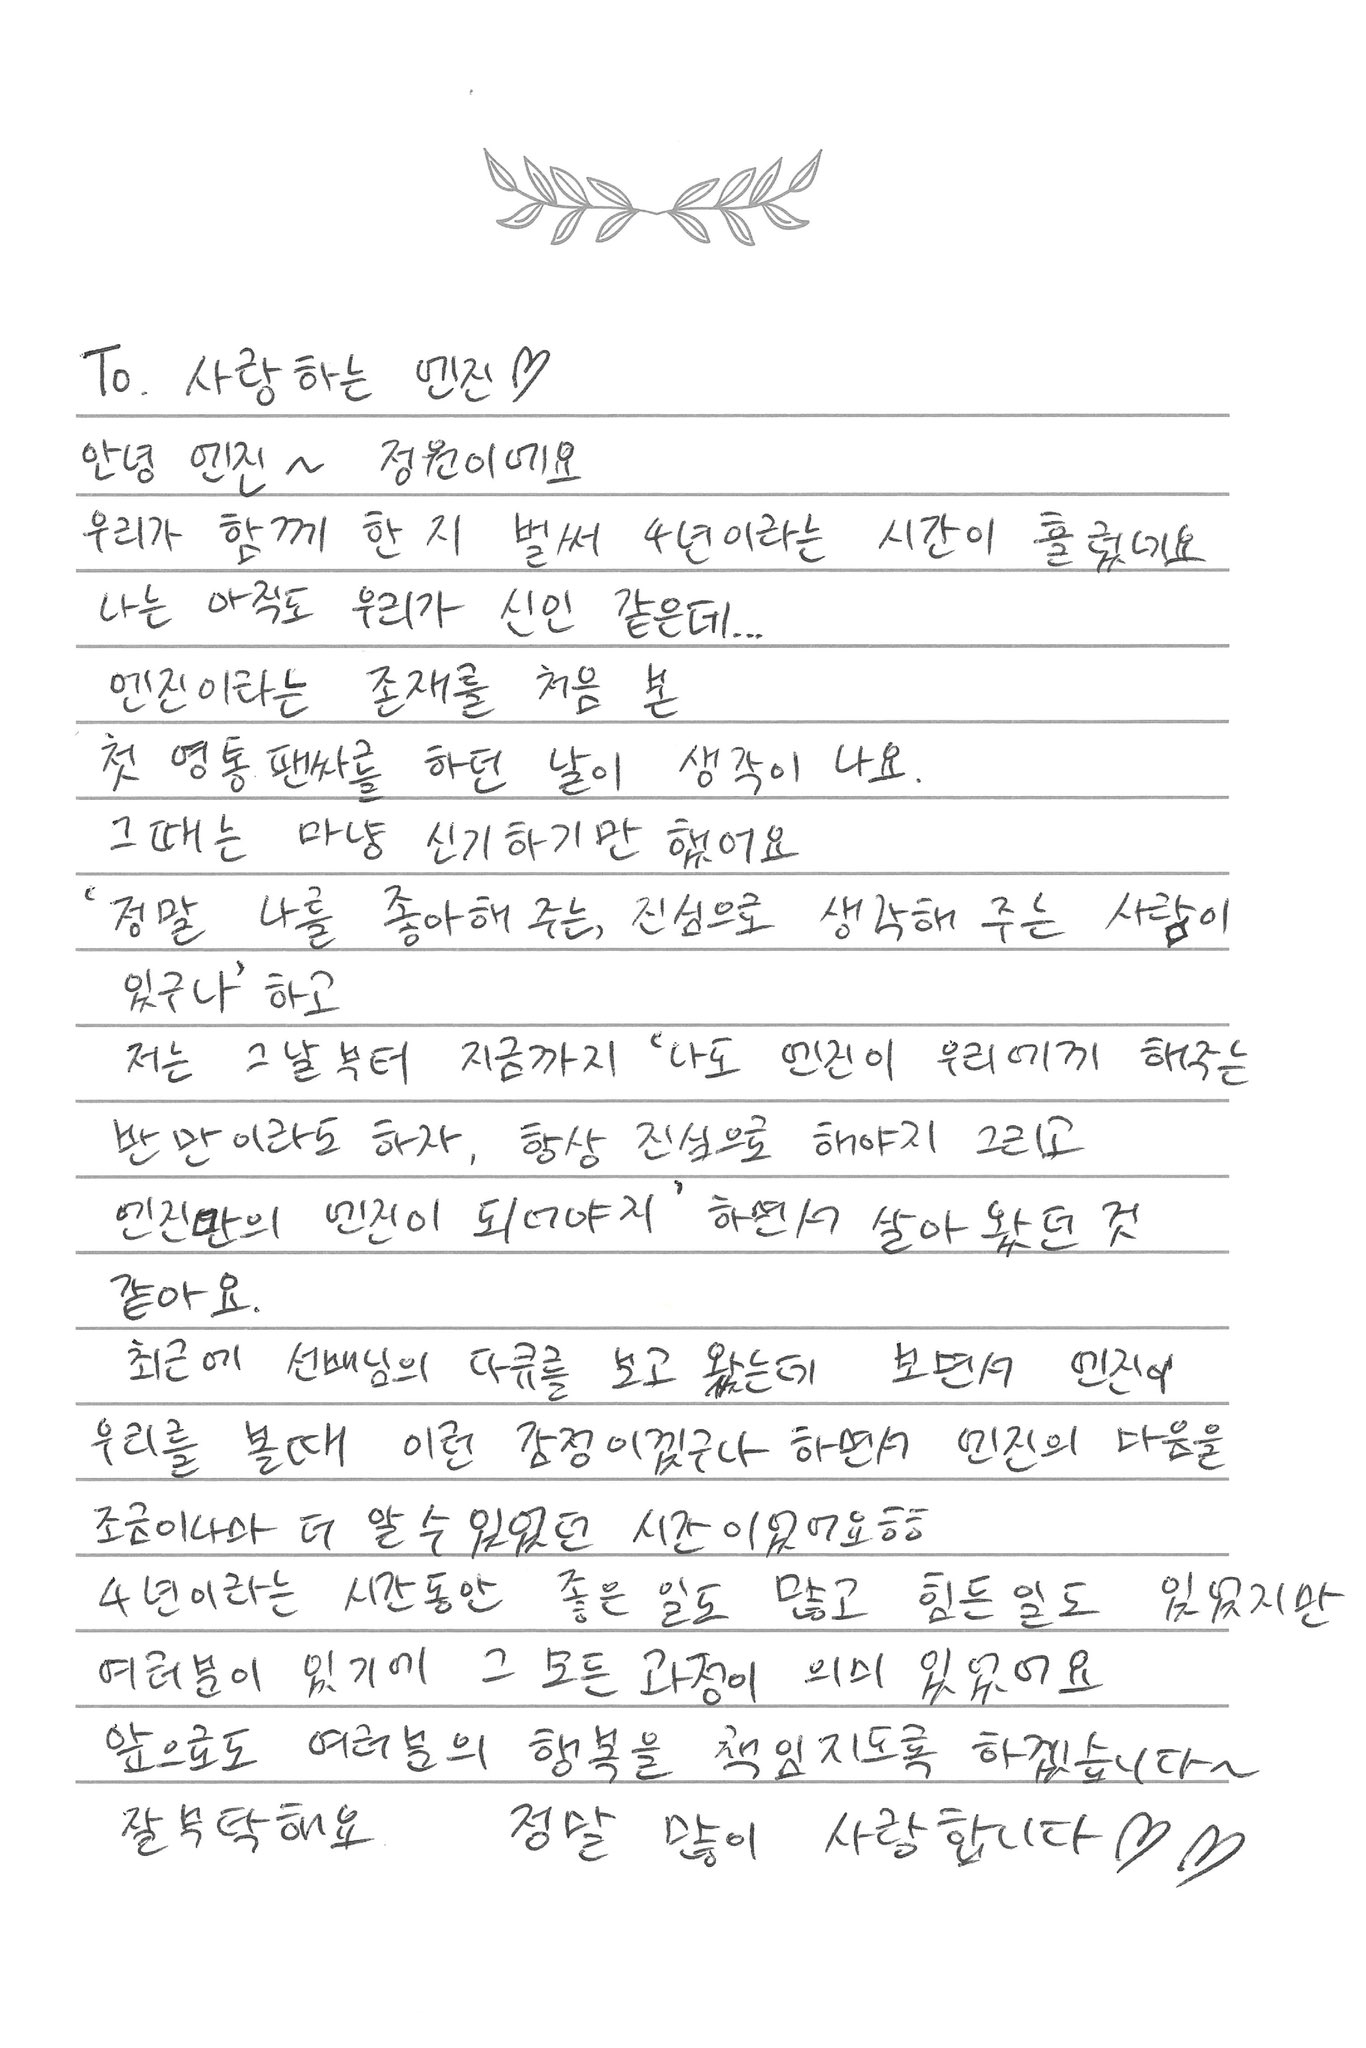 To. 사랑하는 엔진♡
안녕 엔진~ 정원이에요
우리가 함께 한 지 벌써 4년이라는 시간이 흘렀네요
나는 아직도 우리가 신인 같은데...
엔진이라는 존재를 처음 본
첫 영통팬싸를 하던 날이 생각이 나요.
그때는 마냥 신기하기만 했어요
'정말 나를 좋아해 주는, 진심으로 생각해 주는 사람이
있구나' 하고
저는 그날부터 지금까지 '나도 엔진이 우리에게 해주는
반만이라도 하자, 항상 진심으로 해야지 그리고
엔진만의 엔진이 되어야지' 하면서 살아 왔던 것
같아요.
최근에 선배님의 다큐를 보고 왔는데 보면서 엔진이
우리를 볼때 이런 감정이겠구나 하면서 엔진의 마음을
조금이나마 더 알 수 있었던 시간이었어요ㅎㅎ
4년이라는 시간동안 좋은 일도 많고 힘든 일도 있었지만
여러분이 있기에 그 모든 과정이 의미 있었어요
앞으로도 여러분의 행복을 책임지도록 하겠습니다~
잘부탁해요 정말 많이 사랑합니다♡♡